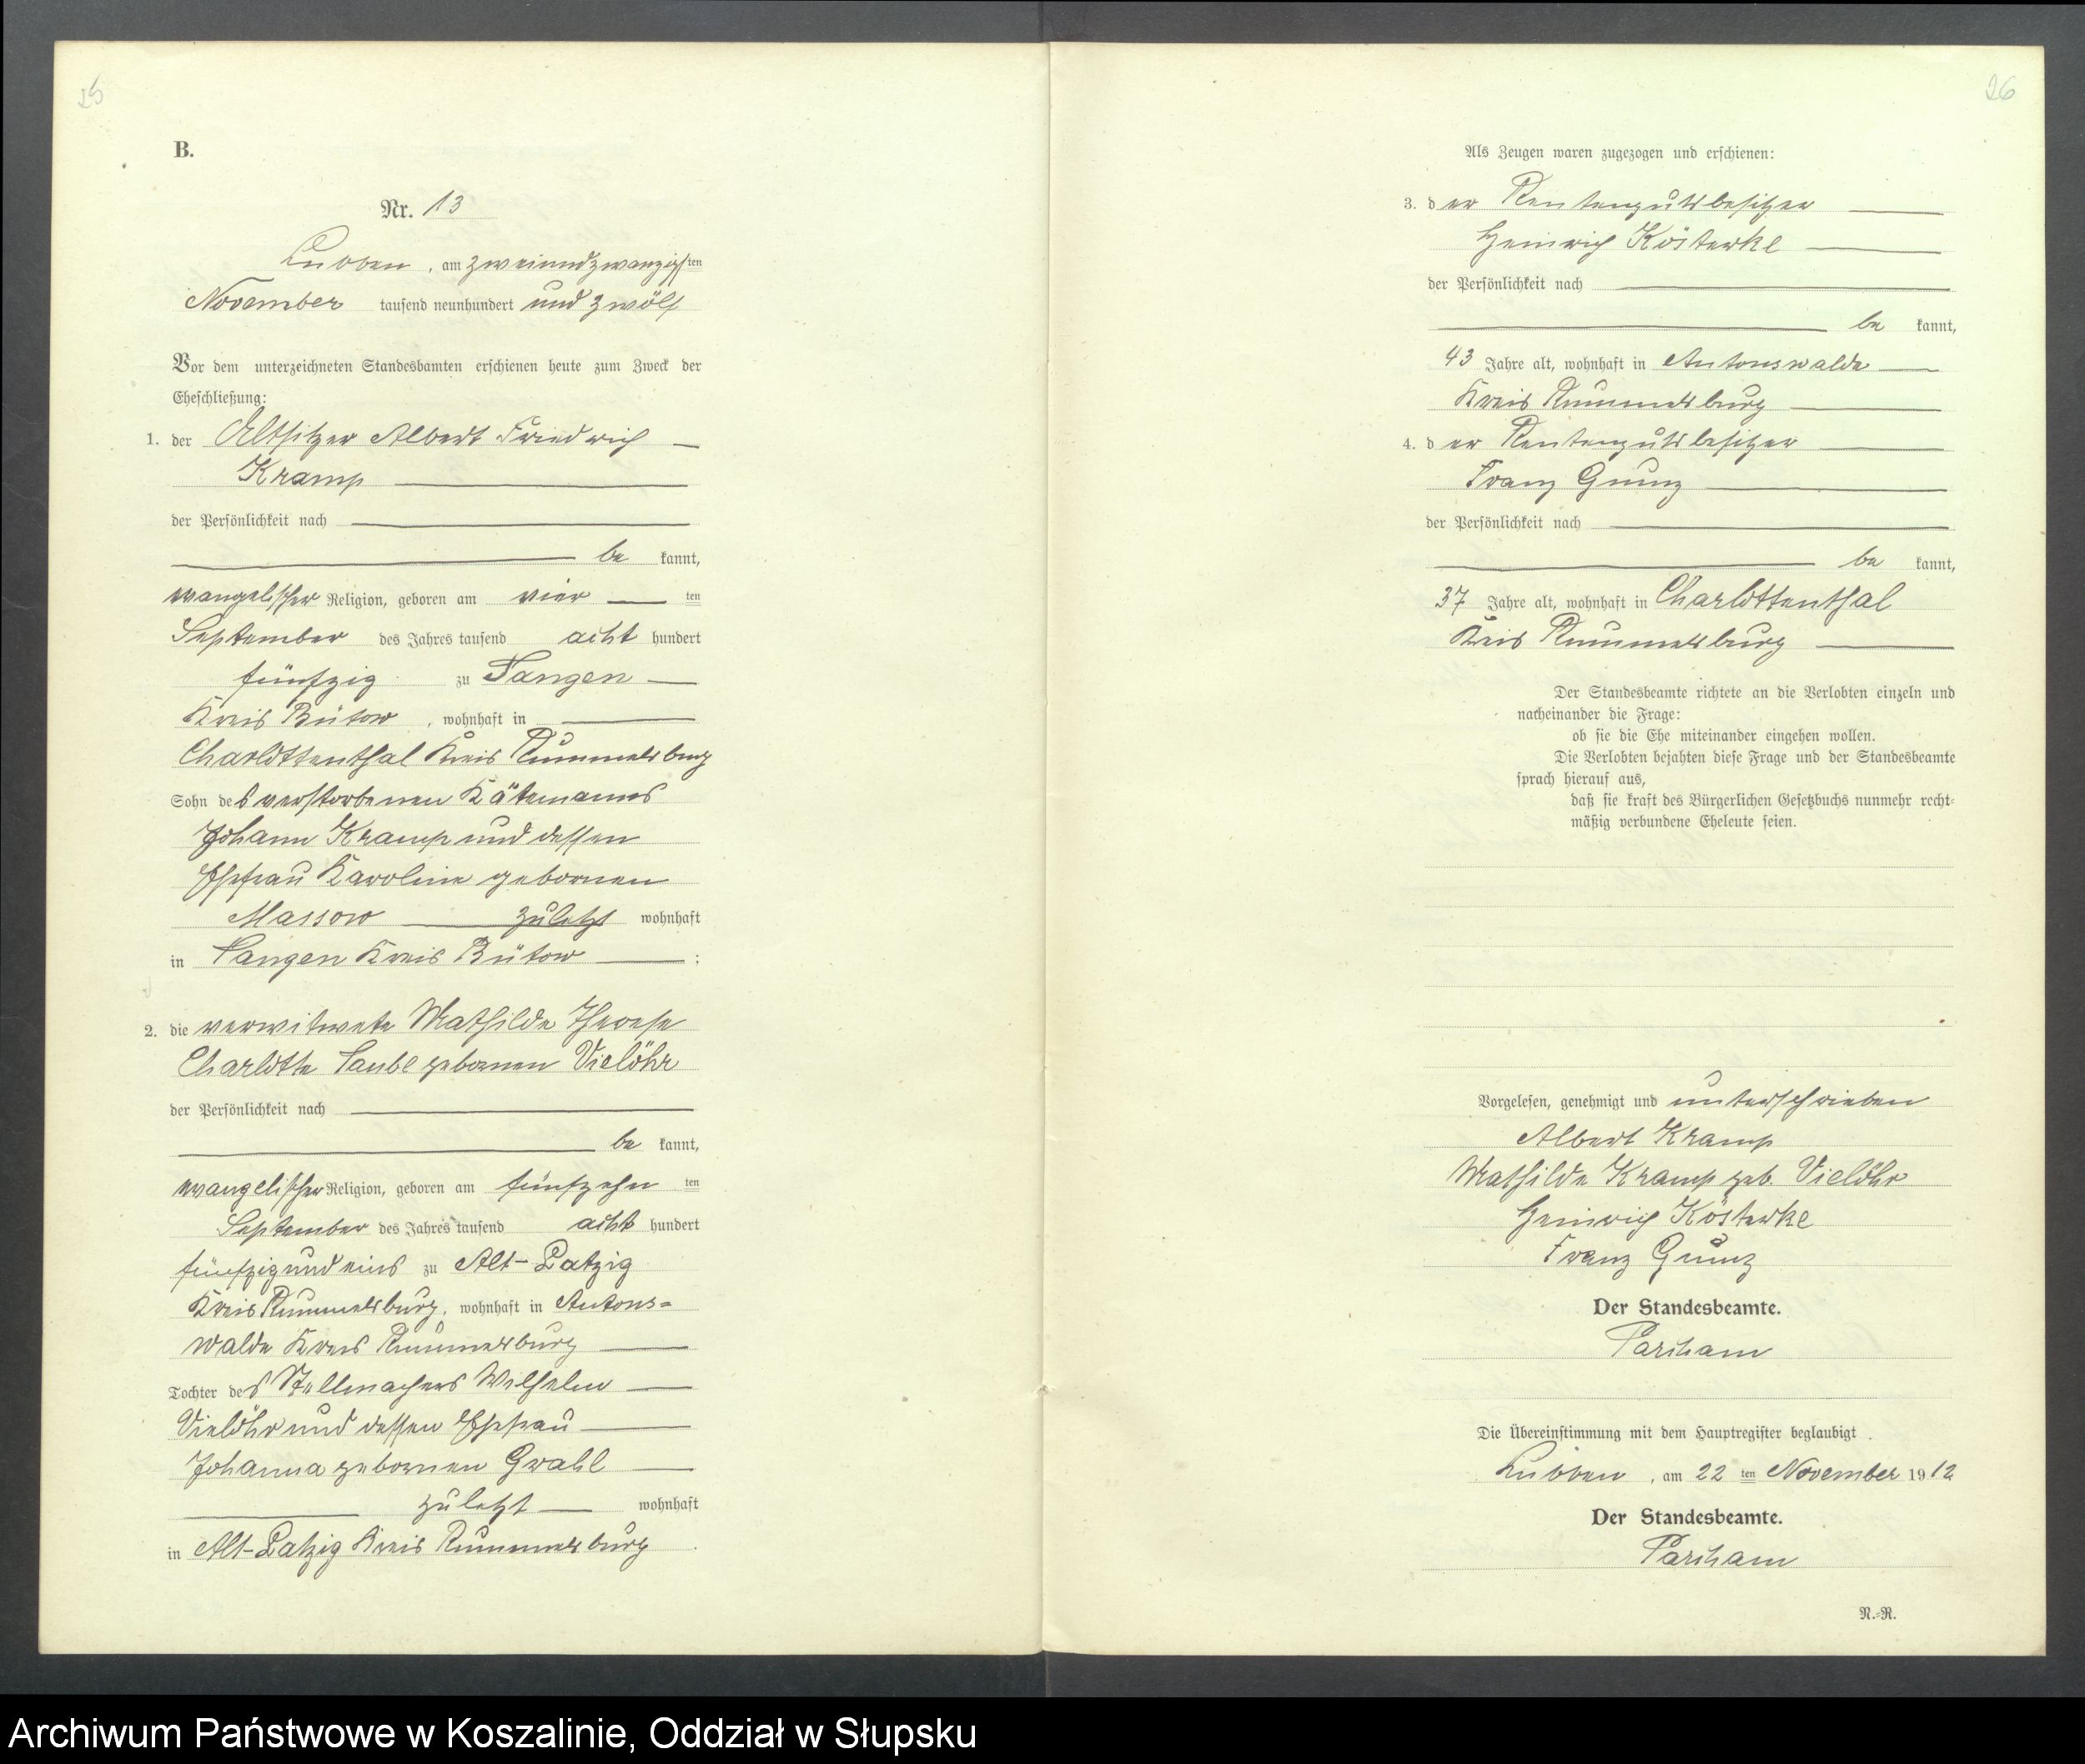 25
B.
Nr. 13
Lubben, am zweiundzwanzigsten
November tausend neunhundert und zwölf
Vor dem unterzeichneten Standesbamten erschienen heute zum Zweck der
Eheschließung:
1. der Altsitzer Albert Friedrich
Kramp
der Persönlichkeit nach
be kannt,
evangelischer Religion, geboren am vier ten
September des Jahres tausend acht hundert
fünfzig zu Sangen
Kreis Bütow, wohnhaft in
Charlottenthal Kreis Rummelsburg
Sohn des verstorbenen Kätemanns
Johann Kramp und dessen
Ehefrau Karoline gebornen
Massow zuletzt wohnhaft
in Sangen Kreis Bütow ;
2. die verwitwete Mathilde Therese
Charlotte Taube gebornen Vielöhr
der Persönlichkeit nach
be kannt,
evangelischer Religion, geboren am fünfzehn ten
September des Jahres tausend acht hundert
fünfzig und eins zu Alt-Latzig
Kreis Rummelsburg, wohnhaft in Antons=
walde Kreis Rummelsburg
Tochter des Stellmachers Wilhelm
Vielöhr und dessen Ehefrau
Johanna gebornen Grahl
zuletzt wohnhaft
in Alt-Latzig Kreis Rummelsburg .
26
Als Zeugen waren zugezogen und erschienen:
3. der Rentengutsbesitzer
Heinrich Kösterke
der Persönlichkeit nach
be kannt,
43 Jahre alt, wohnhaft in Antonswalde
Kreis Rummelsburg
4. der Rentengutsbesitzer
Franz Grunz
der Persönlichkeit nach
be kannt,
37 Jahre alt, wohnhaft in Charlottenthal
Kreis Rummelsburg
Der Standesbeamte richtete an die Verlobten einzeln und
nacheinander die Frage:
ob sie die Ehe miteinander eingehen wollen.
Die Verlobten bejahten diese Frage und der Standesbeamte
sprach hierauf aus,
daß sie kraft des Bürgerlichen Gesetzbuchs nunmehr recht=
mäßig verbundene Eheleute seien.
Vorgelesen, genehmigt und unterschrieben
Albert Kramp
Mathilde Kramp geb. Vielöhr
Heinrich Kösterke
Franz Grunz
Der Standesbeamte.
Parcham
Die Übereinstimmung mit dem Hauptregister beglaubigt .
Lubben, am 22 ten November 1912
Der Standesbeamte.
Parcham
N.=R.
Archiwum Państwowe w Koszalinie, Oddział w Słupsku